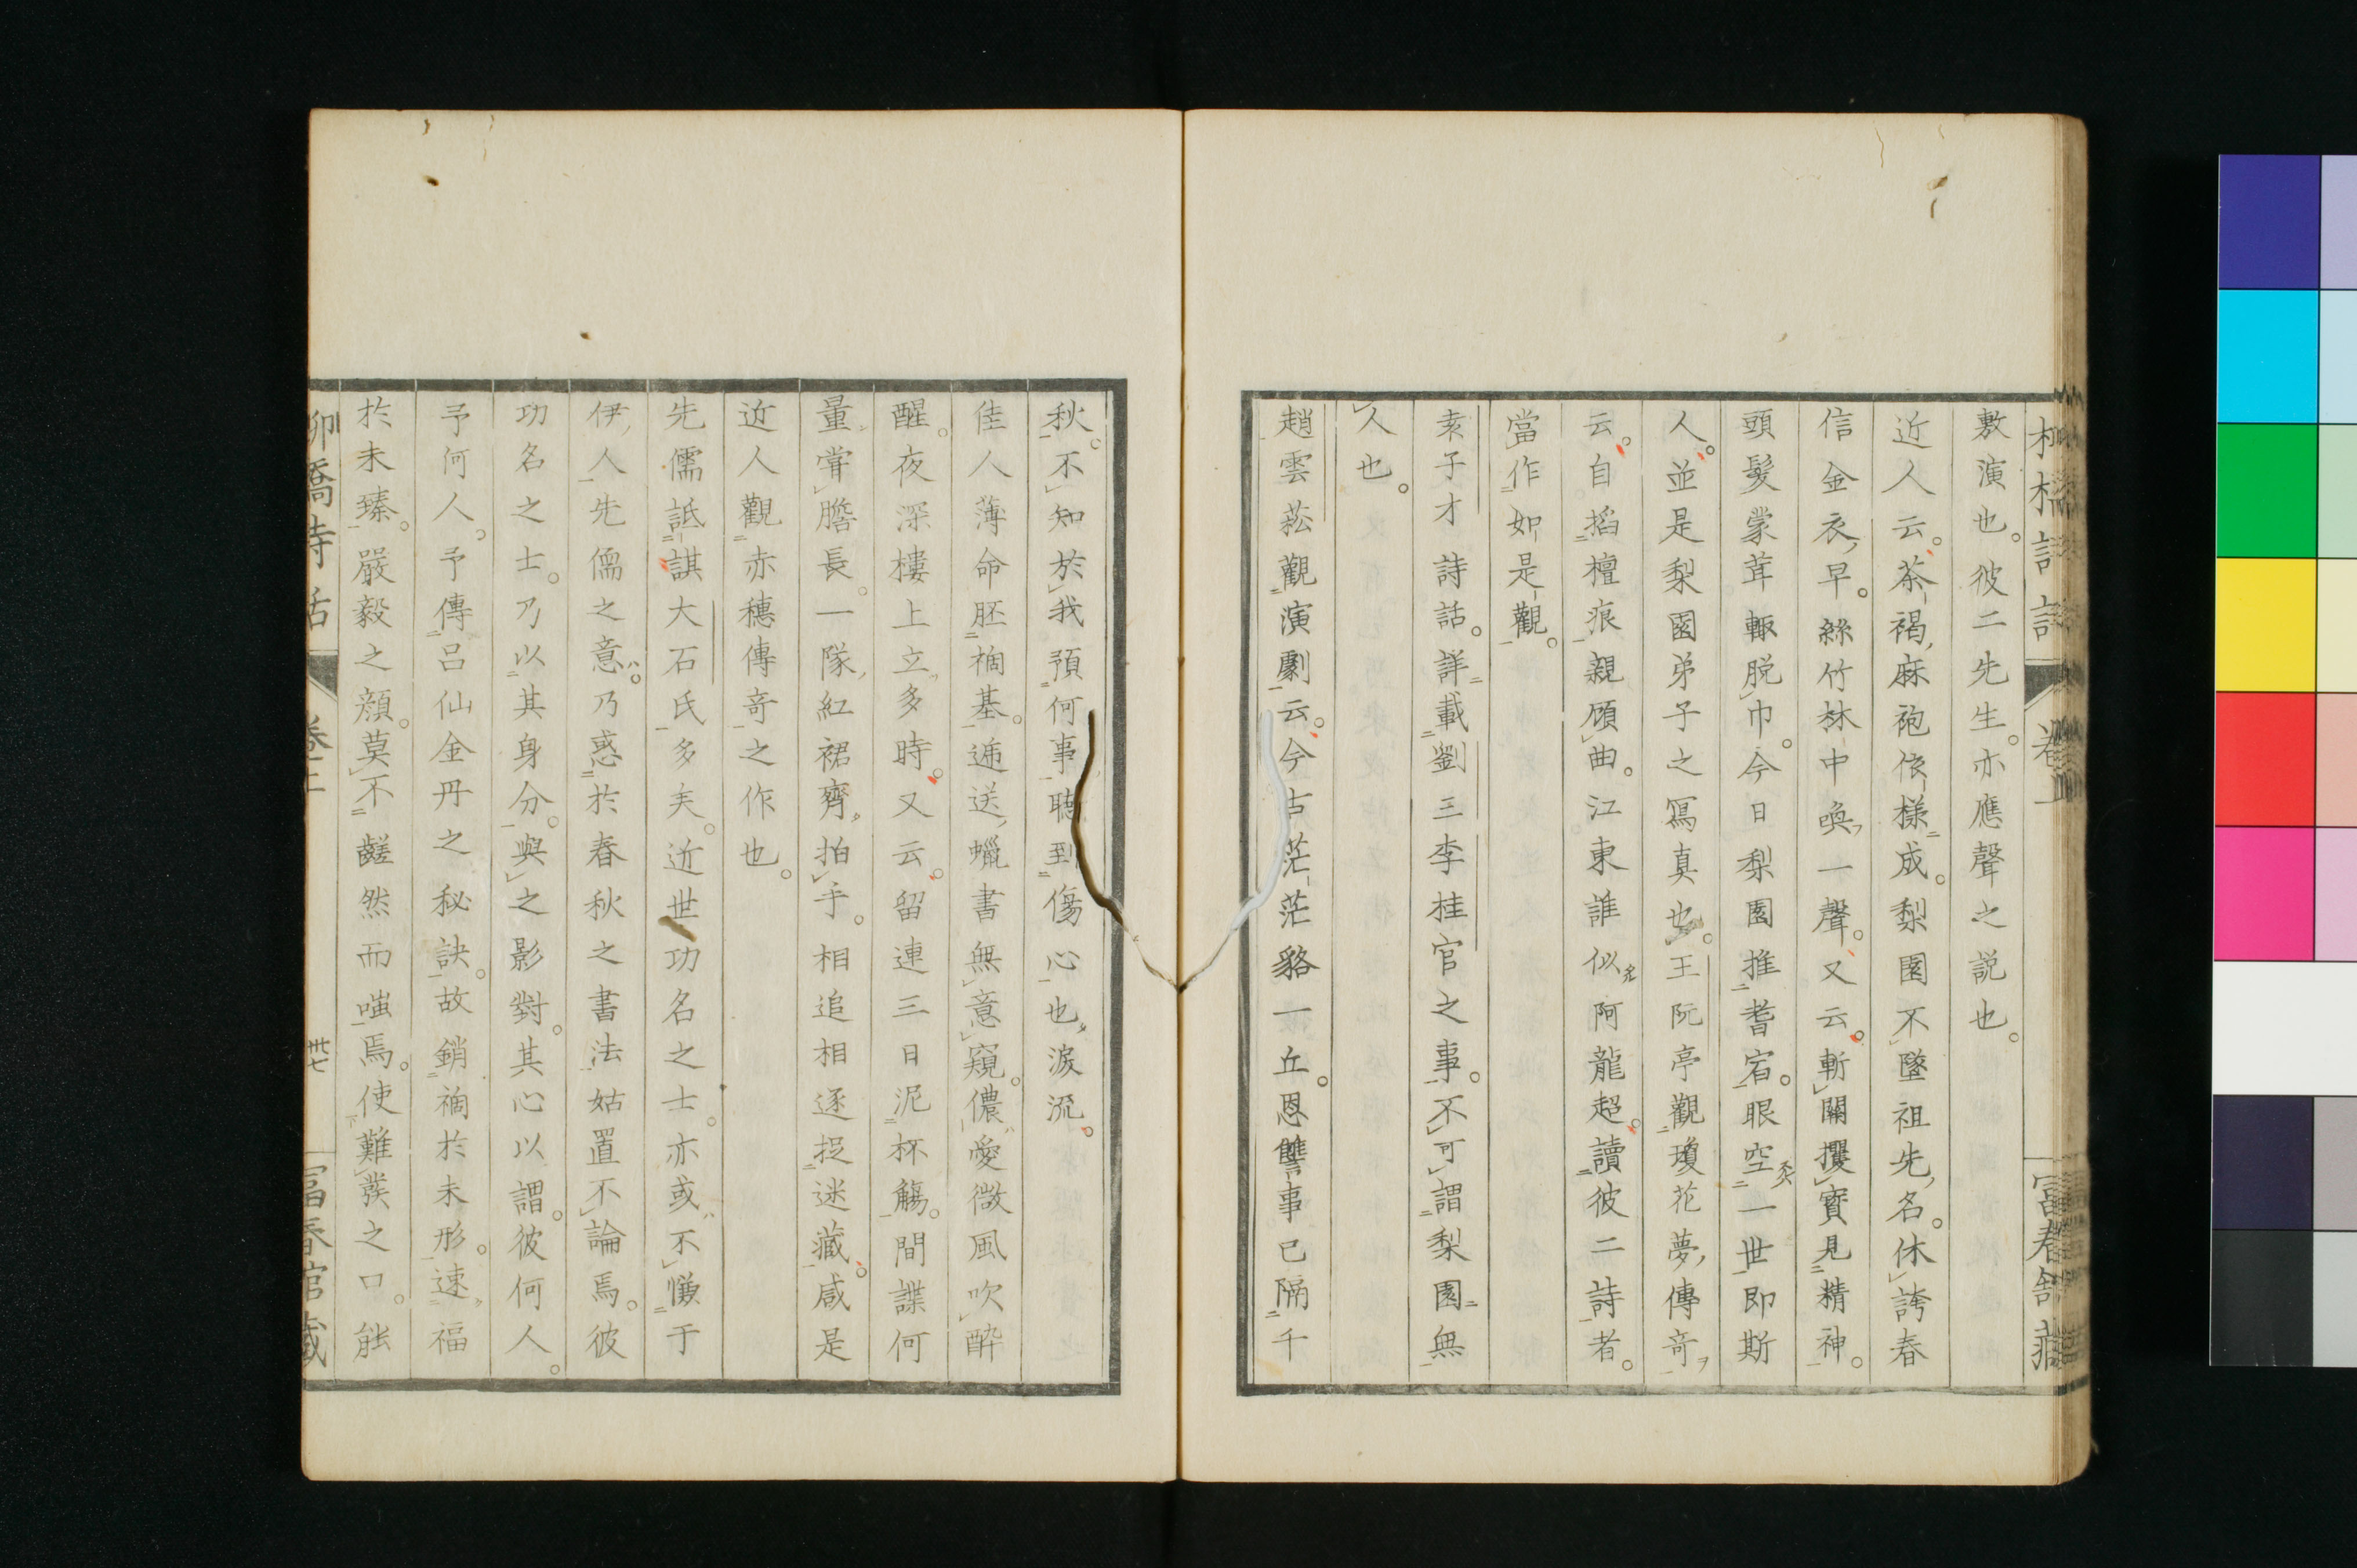 敷演也。彼二先生。亦應聲之説也。
近人云。茶褐麻袍依樣成。梨園不墜祖先名。休誇春
信金衣早。絲竹林中喚一聲。又云。斬關攫寶見精神。
頭髮蒙茸輙脱巾。今日梨園推耆宿。眼空一世即斯
人。並是梨園弟子之寫真也。王阮亭觀瓊花夢傳奇
云。自搯檀痕親顧曲。江東誰似阿龍超。讀彼二詩者。
當作如是觀。
袁子才詩話。詳載劉三李桂官之事。不可謂梨園無
人也。
趙雲菘觀演劇云。今古茫茫貉一丘。恩讐事已隔千
柳橋詩話 卷上 卌七 富春館藏
秋。不知於我預何事。聽到傷心也淚流。
佳人薄命胚禍基。遞送蠟書無意窺。儂愛微風吹醉
醒。夜深樓上立多時。又云。留連三日泥杯觴。間諜何
量甞膽長。一隊紅裙齊拍手。相追相逐捉迷藏。咸是
近人觀赤穗傳奇之作也。
先儒詆諆大石氏多矣。近世功名之士。亦或不慊于
伊人。先儒之意。乃惑於春秋之書法。姑置不論焉。彼
功名之士。乃以其身分。與之影對。其心以謂。彼何人。
予何人。予傳呂仙金丹之秘訣。故銷禍於未形。速福
於未臻。嚴毅之顏。莫不齹然而嗤焉。使難發之口。能